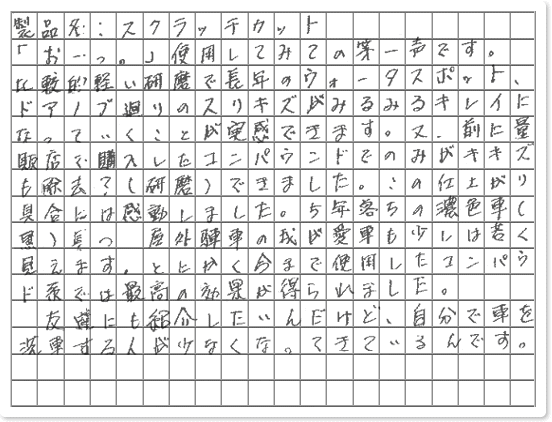 製品名：スクラッチカット
「おーっ。」使用してみての第一声です。
比較的軽い研磨で長年のウォータスポット、
ドアノブ廻りのスリキズがみるみるキレイに
なっていくことが実感できます。又、前に量
販店で購入したコンパウンドでのみがキキズ
も除去?(研磨)できました。この仕上がり
具合には感動しました。5年落ちの濃色車(
黒)且つ 屋外駐車の我が愛車も少しは若く
見えます。とにかく今まで使用したコンパウ
ド系では最高の効果が得られました。
友達にも紹介したいんだけど、自分で車を
洗車する人が少なくな。てきているんです。